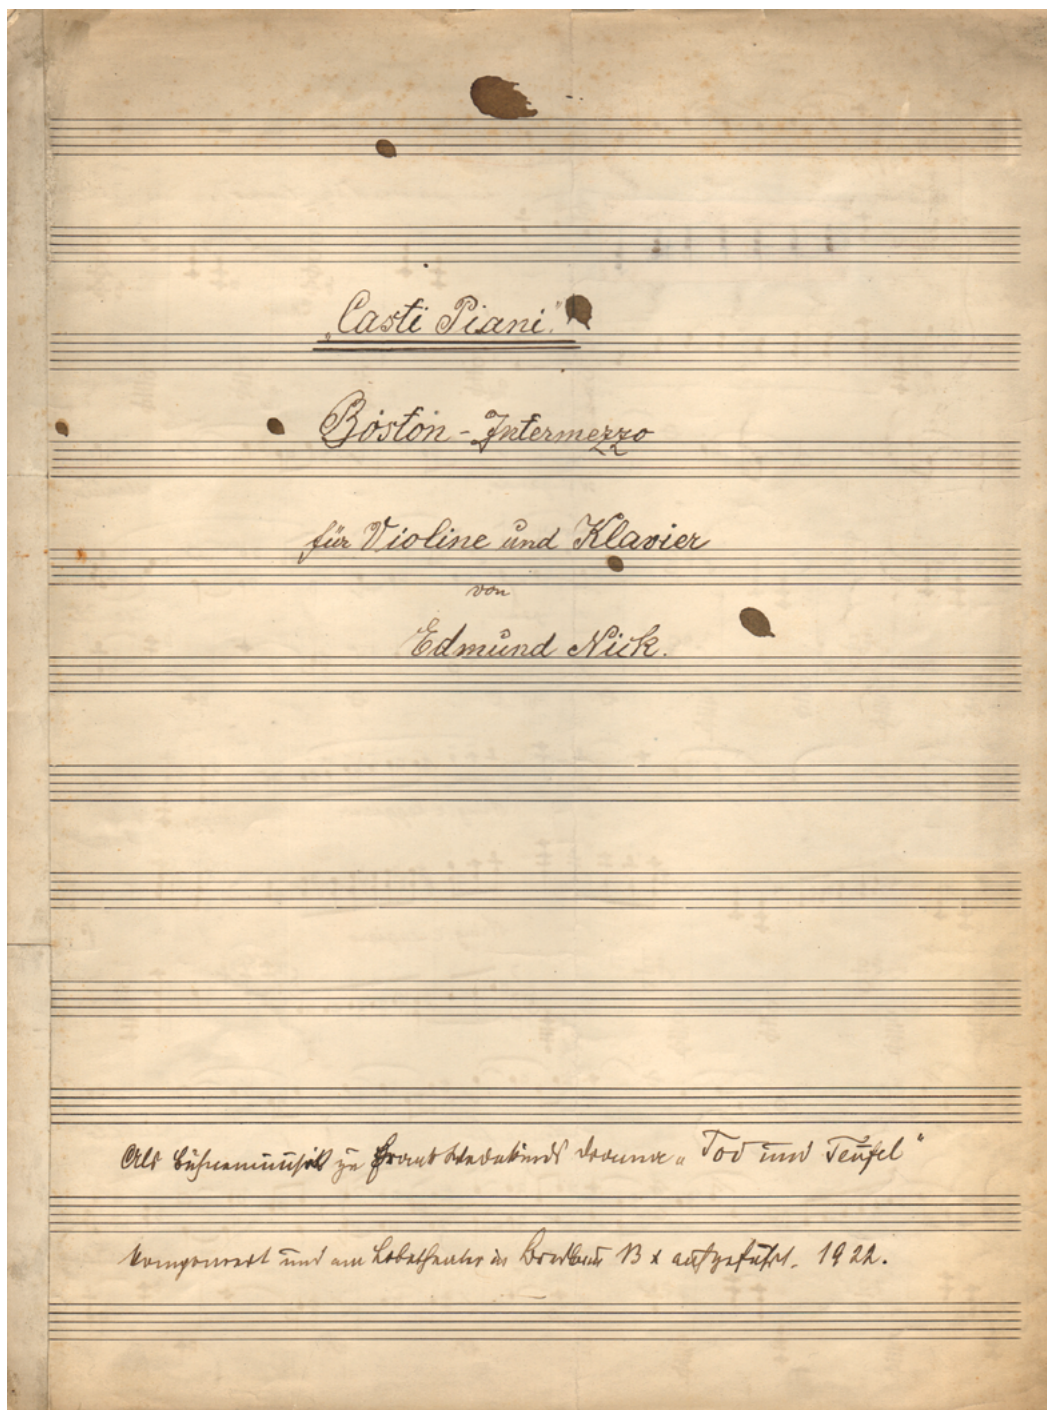 „Casti Piani."
Boston-Intermezzo
für Violine und Klavier
von
Edmund Nick.
Als Bühnenmusik zu Frank Wedekinds Drama „Tod und Teufel"
komponiert und am Lobetheater in Breslau 13 x aufgeführt. 1922.